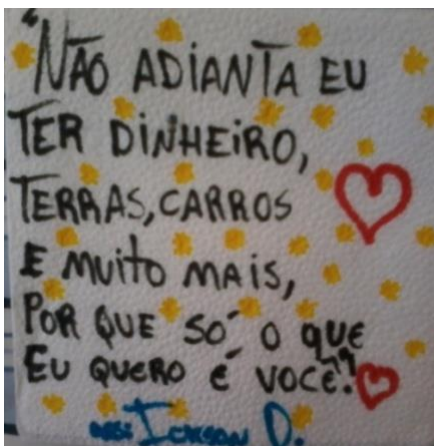 "NÃO ADIANTA EU
TER DINHEIRO,
TERRAS, CARROS
E MUITO MAIS,
POR QUE SÓ O QUE
EU QUERO É VOCÊ."
D.